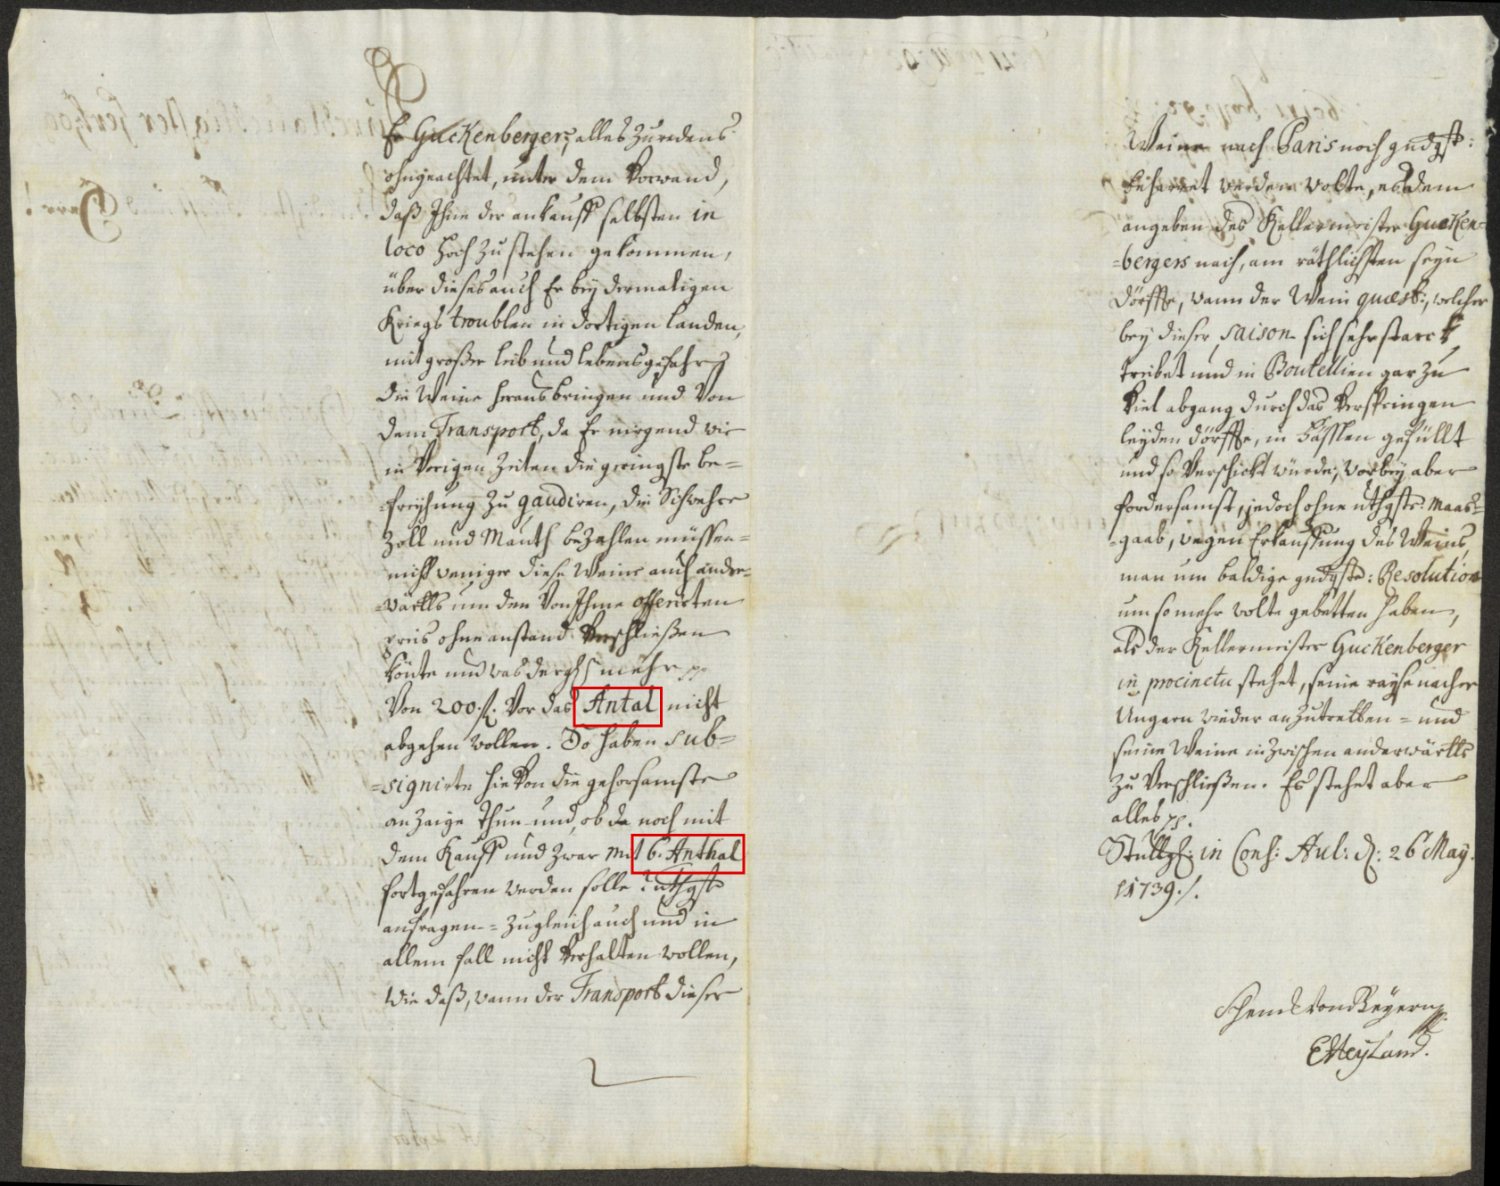 Er Guckenberger, alles Zuredens
ohngeachtet, unter dem Vorwand,
daß Ihne der ankauff selbsten in
loco hoch zu stehen gekommen,
über dieses auch Er bey dermaligen
Kriegs troublen in dortigen Landen,
mit großer leib und lebensgefahr
die Weine herausbringen und von
dem Transport, da Er nirgend wie
in vorigen Zeiten die geringste be=
freyhung zu gaudiren, die Schwehre
Zoll und Mauth bezahlen müssen=
nicht weniger diese Weine auch ander=
=wärtts um den von Ihme offerirten
preis ohne anstand verschließen
könte und was dergl. mehr pp
Von 200. fl. vor das Antal nicht
abgehen wollen. So haben sub=
=signirte hievon die gehorsamste
anzeige thun und, ob da noch mit
dem Kauff und zwar mit 6. Anthal
fortgefahren werden solle? uthgst
anfragen = zugleich auch und in
allem fall nicht verhalten wollen,
wie daß, wann der Transport dieser
Weine nach Paris noch gndgst:
beharret werden wolte, es dem
angeben des Kellermeister Gucken=
=bergers nach, am räthlichsten seyn
dörffte, wann der Wein quæst:, welcher
bey dieser saison sich sehr starck
treibet und in Boutellien gar zu
viel abgang durch das verspringen
leyden dörffte, in Fässlen gefüllt
und so verschickt würde, worbey aber
fordersamst, jedoch ohne uthgste maas=
=gaab, wegen Erkauffung des Weins,
man um baldige gndgste: Resolution
um so mehr wolte gebetten haben,
als der Kellermeister Guckenberger
in procinctu stehet, seine rayse nacher
Ungarn wieder anzutretten = und
seine Weine inzwischen anderwärtts
zu verschließen. Es stehet aber
alles pp.
Stuttgh: in Cons: Aul: d: 26 May.
1739./.
Schenck von Geyern
Heyland.